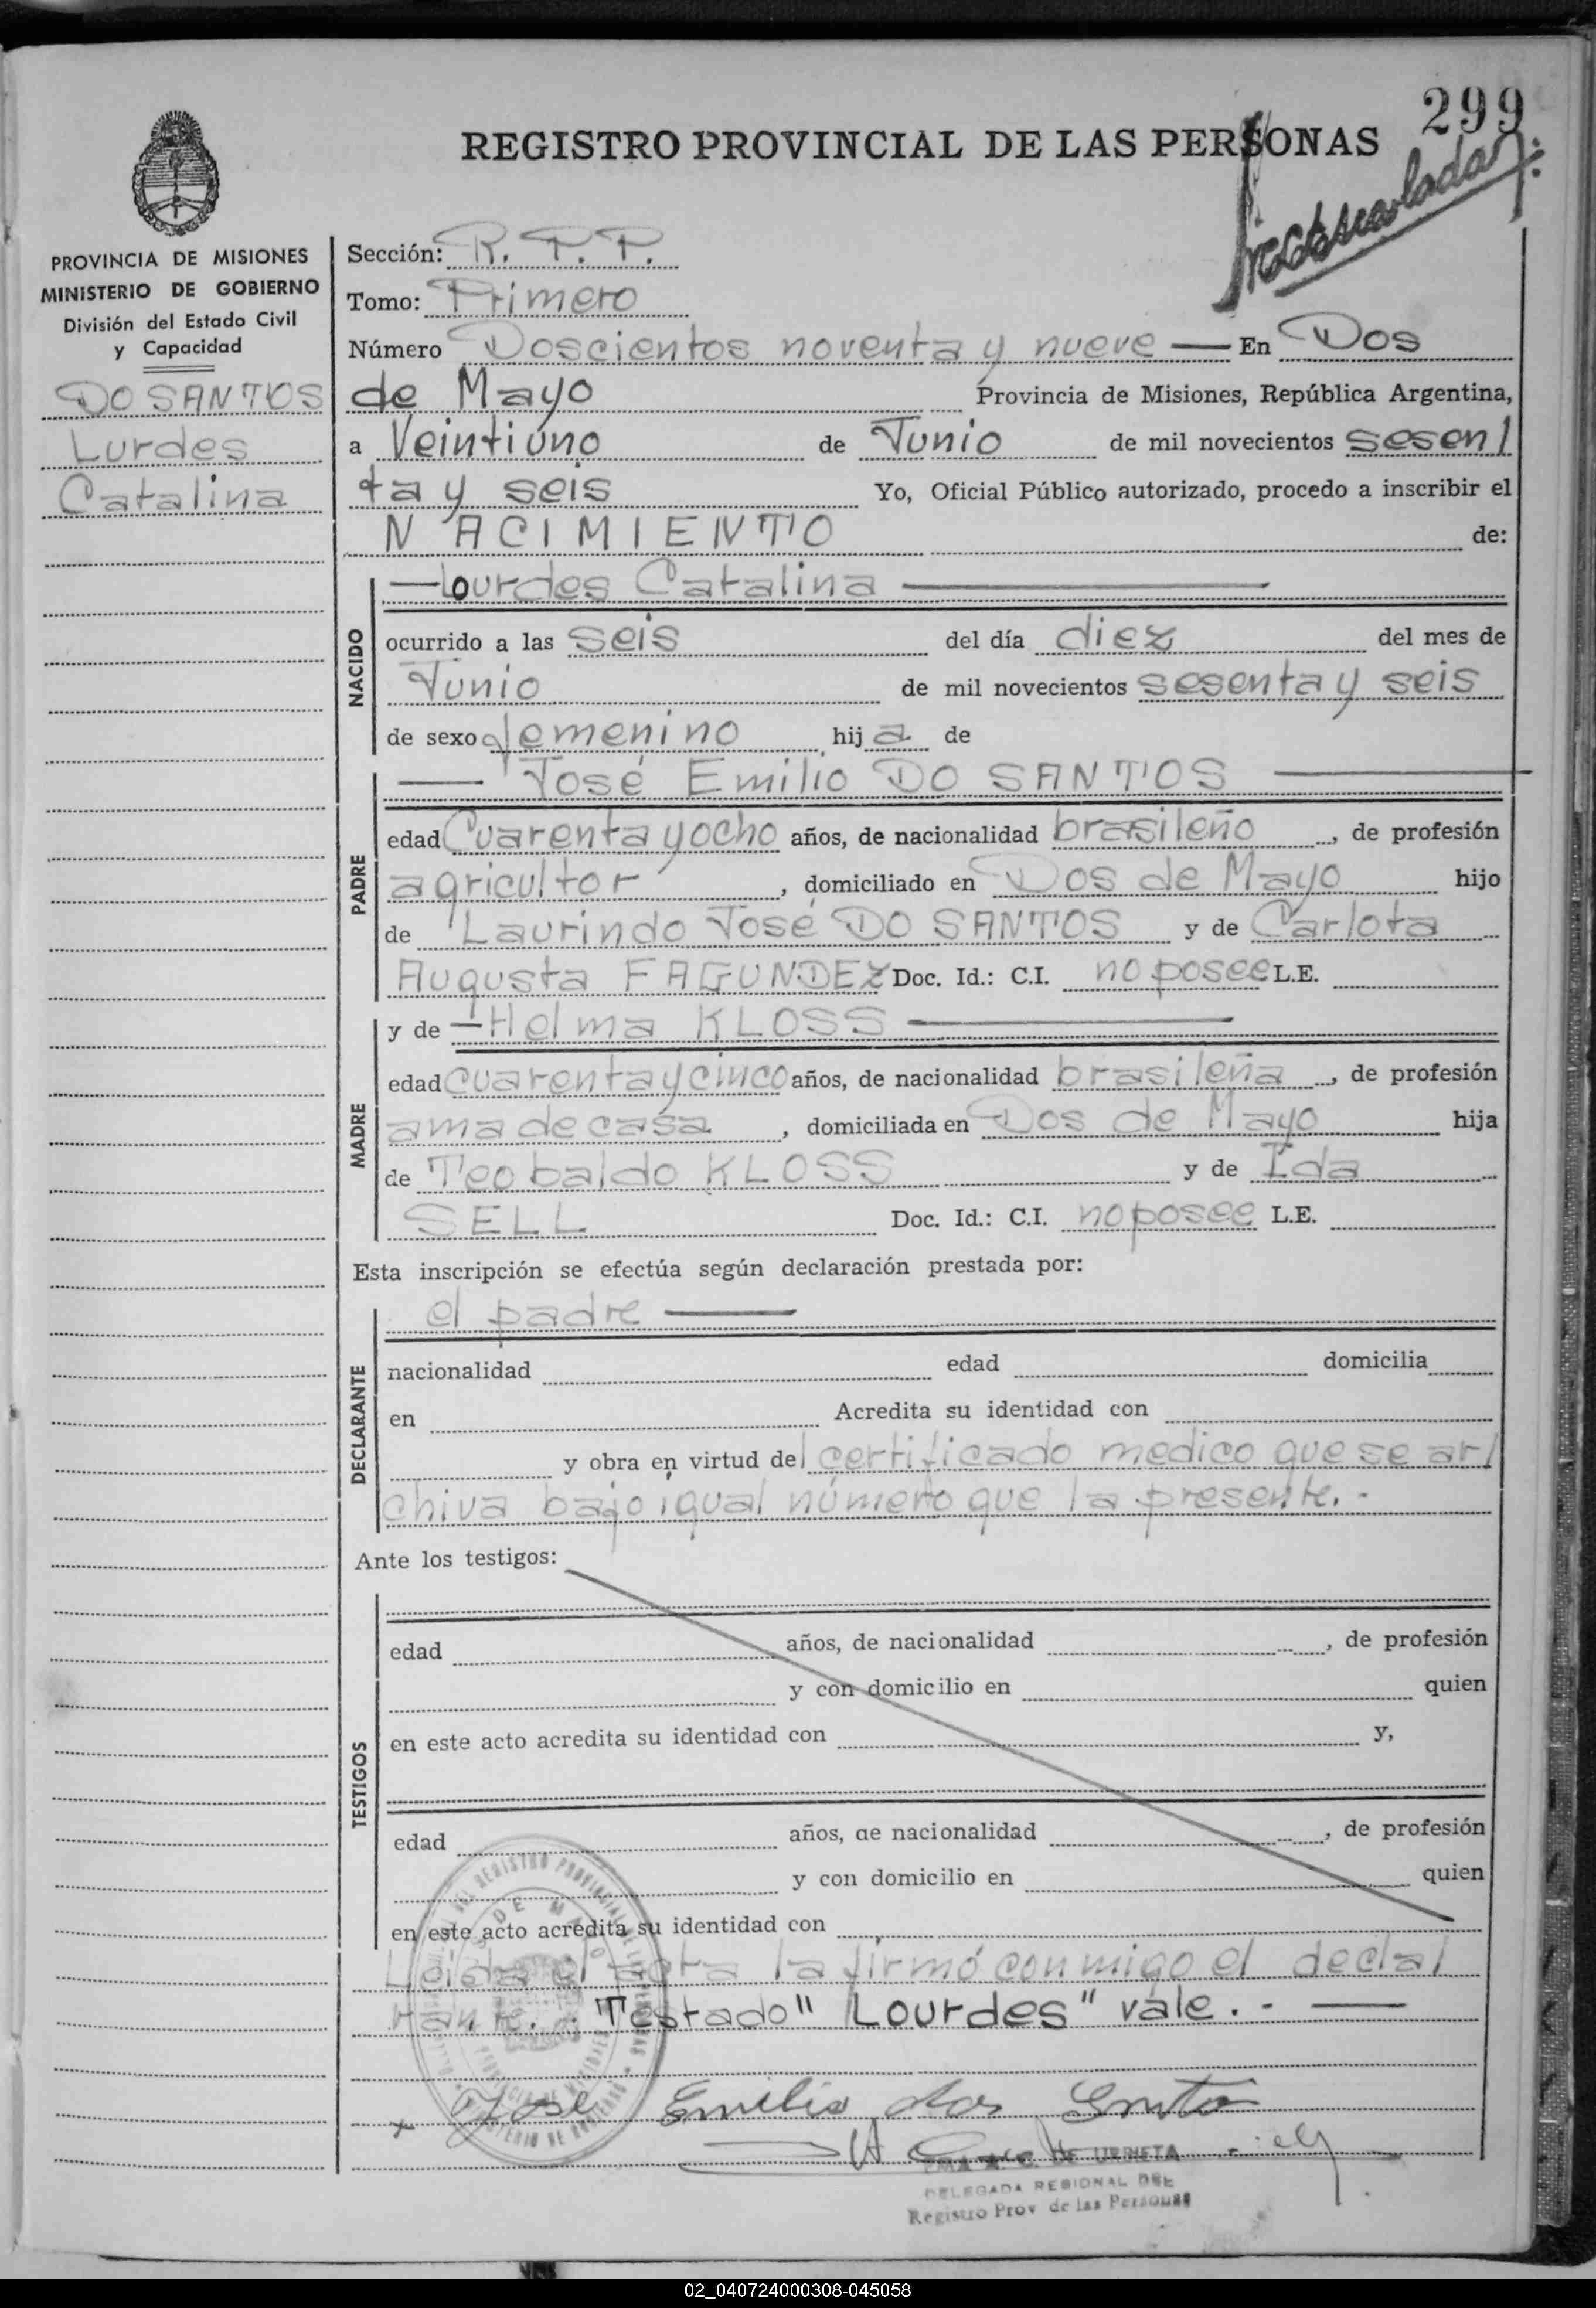 299
REGISTRO PROVINCIAL DE LAS PERSONAS
PROVINCIA DE MISIONES
MINISTERIO DE GOBIERNO
División del Estado Civil
y Capacidad
DO SANTOS
Lurdes
Catalina
Sección: R. P. P.
Tomo: Primero
Número Doscientos noventa y nueve — En Dos
de Mayo Provincia de Misiones, República Argentina,
a Veintiuno de Junio de mil novecientos sesen/
ta y seis Yo, Oficial Público autorizado, procedo a inscribir el
NACIMIENTO de:
NACIDO
— Lourdes Catalina —
ocurrido a las seis del día diez del mes de
Junio de mil novecientos sesenta y seis
de sexo femenino hij a de
PADRE
— José Emilio DO SANTOS —
edad Cuarenta y ocho años, de nacionalidad brasileño, de profesión
agricultor, domiciliado en Dos de Mayo hijo
de Laurindo José DO SANTOS y de Carlota
Augusta FAGUNDEZ Doc. Id.: C.I. no posee L.E.
MADRE
y de — Helma KLOSS —
edad cuarenta y cinco años, de nacionalidad brasileña, de profesión
ama de casa, domiciliada en Dos de Mayo hija
de Teobaldo KLOSS y de Ida
SELL Doc. Id.: C.I. no posee L.E.
Esta inscripción se efectúa según declaración prestada por:
DECLARANTE
el padre —
nacionalidad edad domicilia
en Acredita su identidad con
y obra en virtud del certificado medico que se ar/
chiva bajo igual número que la presente. -
Ante los testigos:
TESTIGOS
edad años, de nacionalidad , de profesión
y con domicilio en quien
en este acto acredita su identidad con y,
edad años, de nacionalidad , de profesión
y con domicilio en quien
en este acto acredita su identidad con
Leida el acta la firmó conmigo el decla/
rante. Testado "Lourdes" vale. - —
x José Emilio dos Santos
DE URRIETA
DELEGADA REGIONAL DEL
Registro Prov de las Personas
02_040724000308-045058